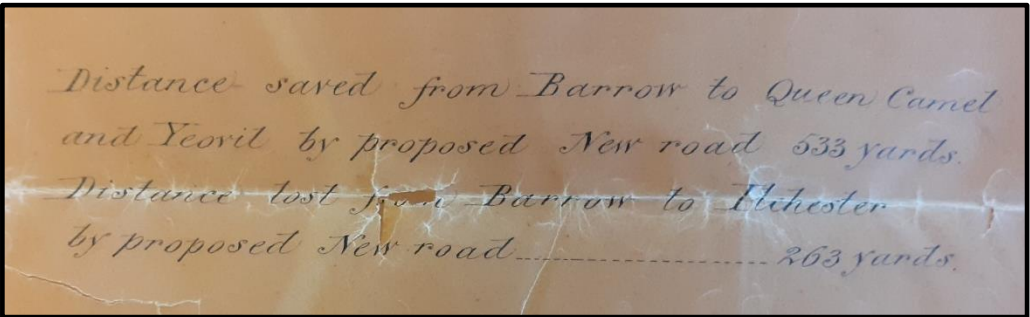 Distance saved from Barrow to Queen Camel
and Yeovil by proposed New road 533 yards.
Distance lost from Barrow to Ilchester
by proposed New road ................ 263 yards.